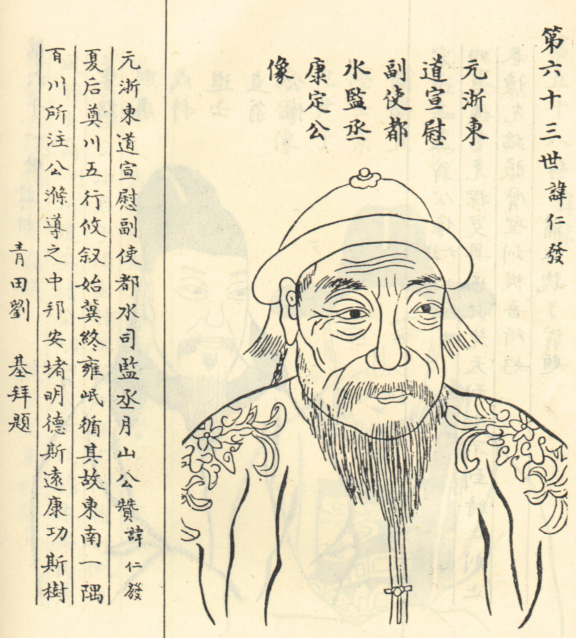 第六十三世諱仁發
元浙東
道宣慰
副使都
水監丞
康定公
像
元浙東道宣慰副使都水司監丞月山公贊諱仁發
夏后奠川五行攸叙始冀終雍岷循其故東南一隅
百川所注公滌導之中邦安堵明德斯遠康功斯樹
青田劉　基拜題